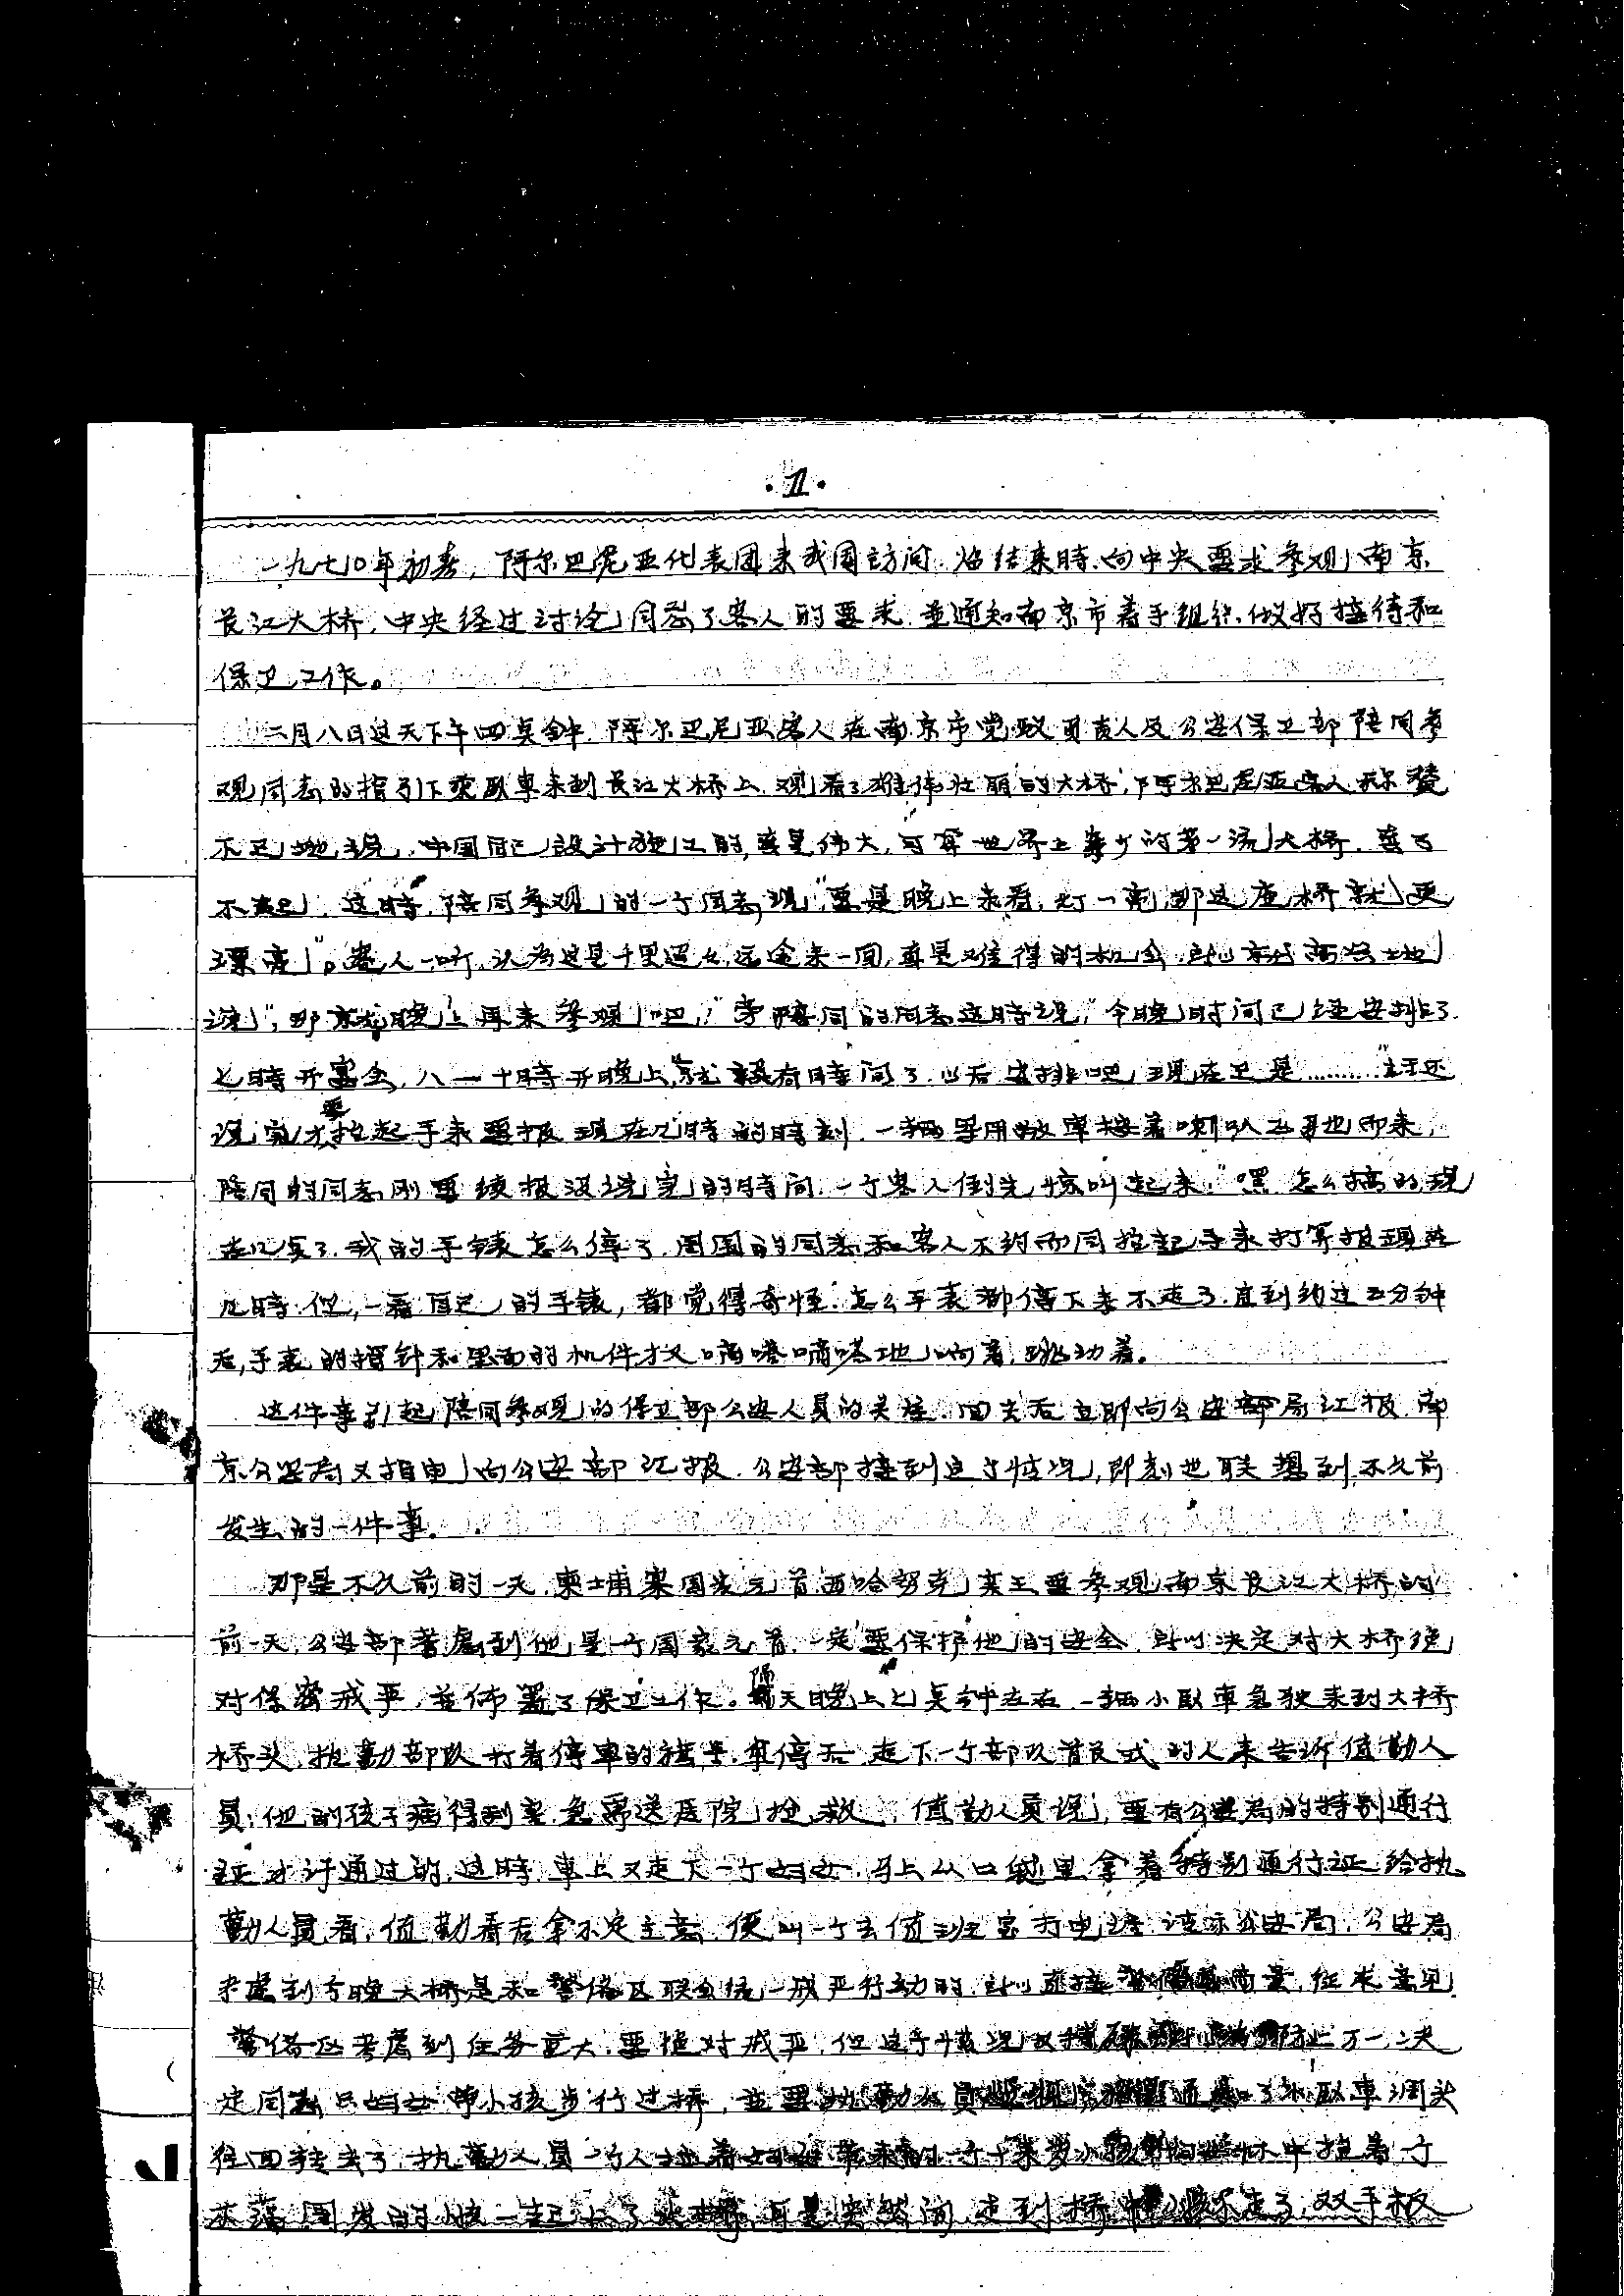 ·1·
一九七〇年初春，阿尔巴尼亚代表团来我国訪问．临结束時．向中央要求参观南京
长江大桥．中央经过讨论同意了客人的要求．並通知南京市着手组织．做好接待和
保卫工作。
二月八日这天下午四点钟．阿尔巴尼亚客人在南京市党政負責人及公安保卫部陪同参
观同志的指引下乘臥車来到长江大桥上．观看了雄伟壮丽的大桥，阿尔巴尼亚客人称赞
不已地说．中国自己设计施工的，真是伟大，可算世界上㝍少的第一流大桥．真了
不起．这時．陪同参观的一个同志说，"要是晚上来看，灯一亮，那这座桥就更
漂亮"。客人一听，认为这是千里迢々，远途来一回，真是难得的机会．就高兴地
说"，那就晚上再来参观吧，"旁陪同的同志这時说，"今晚時间已经安排了．
七時开宴会，八一十時开晚上，就没有時间了．以后安排吧，现在已是………"话还
没完才抬起手来要报现在几時的時刻．一辆军用 車按着喇叭 而来，
陪同的同志刚要续报没说完的時间．一个客人倒先惊叫起来．"嘿．怎么搞的，现
在几点了．我的手錶怎么停了．周围的同志和客人不约而同抬起手来打算报现在
几時．但，一看自己的手錶，都觉得奇怪．怎么手表都停下来不走了．直到约过五分钟
后，手表的指针和里面的机件才又嘀嗒嘀嗒地响着，跳动着．
这件事引起陪同参观的保卫部公安人员的关注．回去后立即向公安局汇报．南
京公安局又拍电向公安部汇报．公安部接到这个情况，即刻也联想到不久前
发生的一件事．
那是不久前的一天．柬埔寨国家元首西哈努克亲王要参观南京长江大桥的
前一天，公安部考虑到他是一个国家元首，一定要保护他的安全．所以决定对大桥绝
对保密戒严．並佈置了保卫工作．隔天晚上七点钟左右．一辆小臥車急驶来到大桥
桥头．执勤部队打着停車的旗号．車停后．走下一个部队首长式的人来告诉值勤人
员：他的孩子病得利害．急需送医院抢救．值勤人员说，要有公安局的特别通行
証才许通过的．这時．車上又走下一个妇女．马上从口袋里拿着特别通行证给执
勤人员看，值勤看后拿不定主意．便叫一个去值班室打电话请示公安局．公安局
考虑到今晚大桥是和警备区联合统一戒严行动的．所以直接 商量，征求意见．
警备区考虑到任务重大．要绝对戒严．但这个情况 万一，决
定同意只妇女带小孩步行过桥，並要执勤人员 臥車调头
往回转去了．执勤人员一个人拉着妇女带来的一个十来岁小孩 怀中抱着个
 的小孩一起上了大桥．可是突然间．走到桥中 不走了．双手板